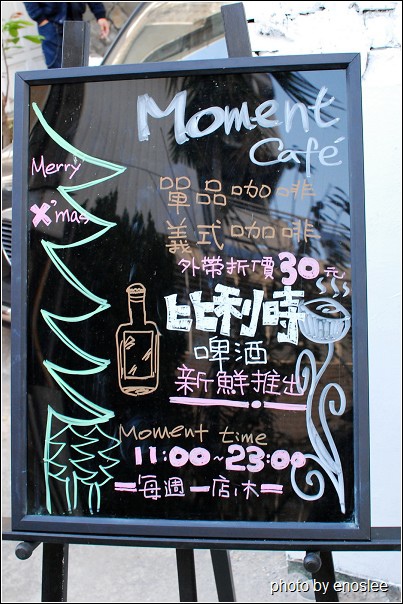 Moment
Café
Merry
X'mas
單品咖啡
義式咖啡
外帶折價30元
比利時
啤酒
新鮮推出
Moment time
11:00~23:00
每週一店休
photo by enoslee